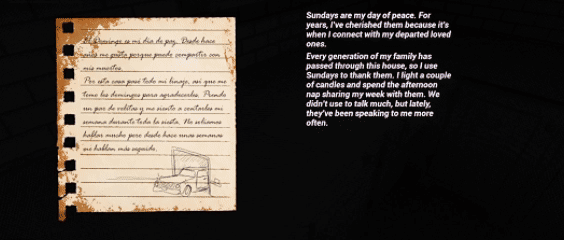 El Domingo es mi día de paz. Desde hace
años me gusta porque puedo compartir con
mis muertos.
Por esta casa pasó todo mi linaje, así que me
tomo los domingos para agradecerles. Prendo
un par de velitas y me siento a contarles mi
semana durante toda la siesta. No solíamos
hablar mucho pero desde hace unas semanas
me hablan más seguido.
Sundays are my day of peace. For
years, I've cherished them because it's
when I connect with my departed loved
ones.
Every generation of my family has
passed through this house, so I use
Sundays to thank them. I light a couple
of candles and spend the afternoon
nap sharing my week with them. We
didn't use to talk much, but lately,
they've been speaking to me more
often.